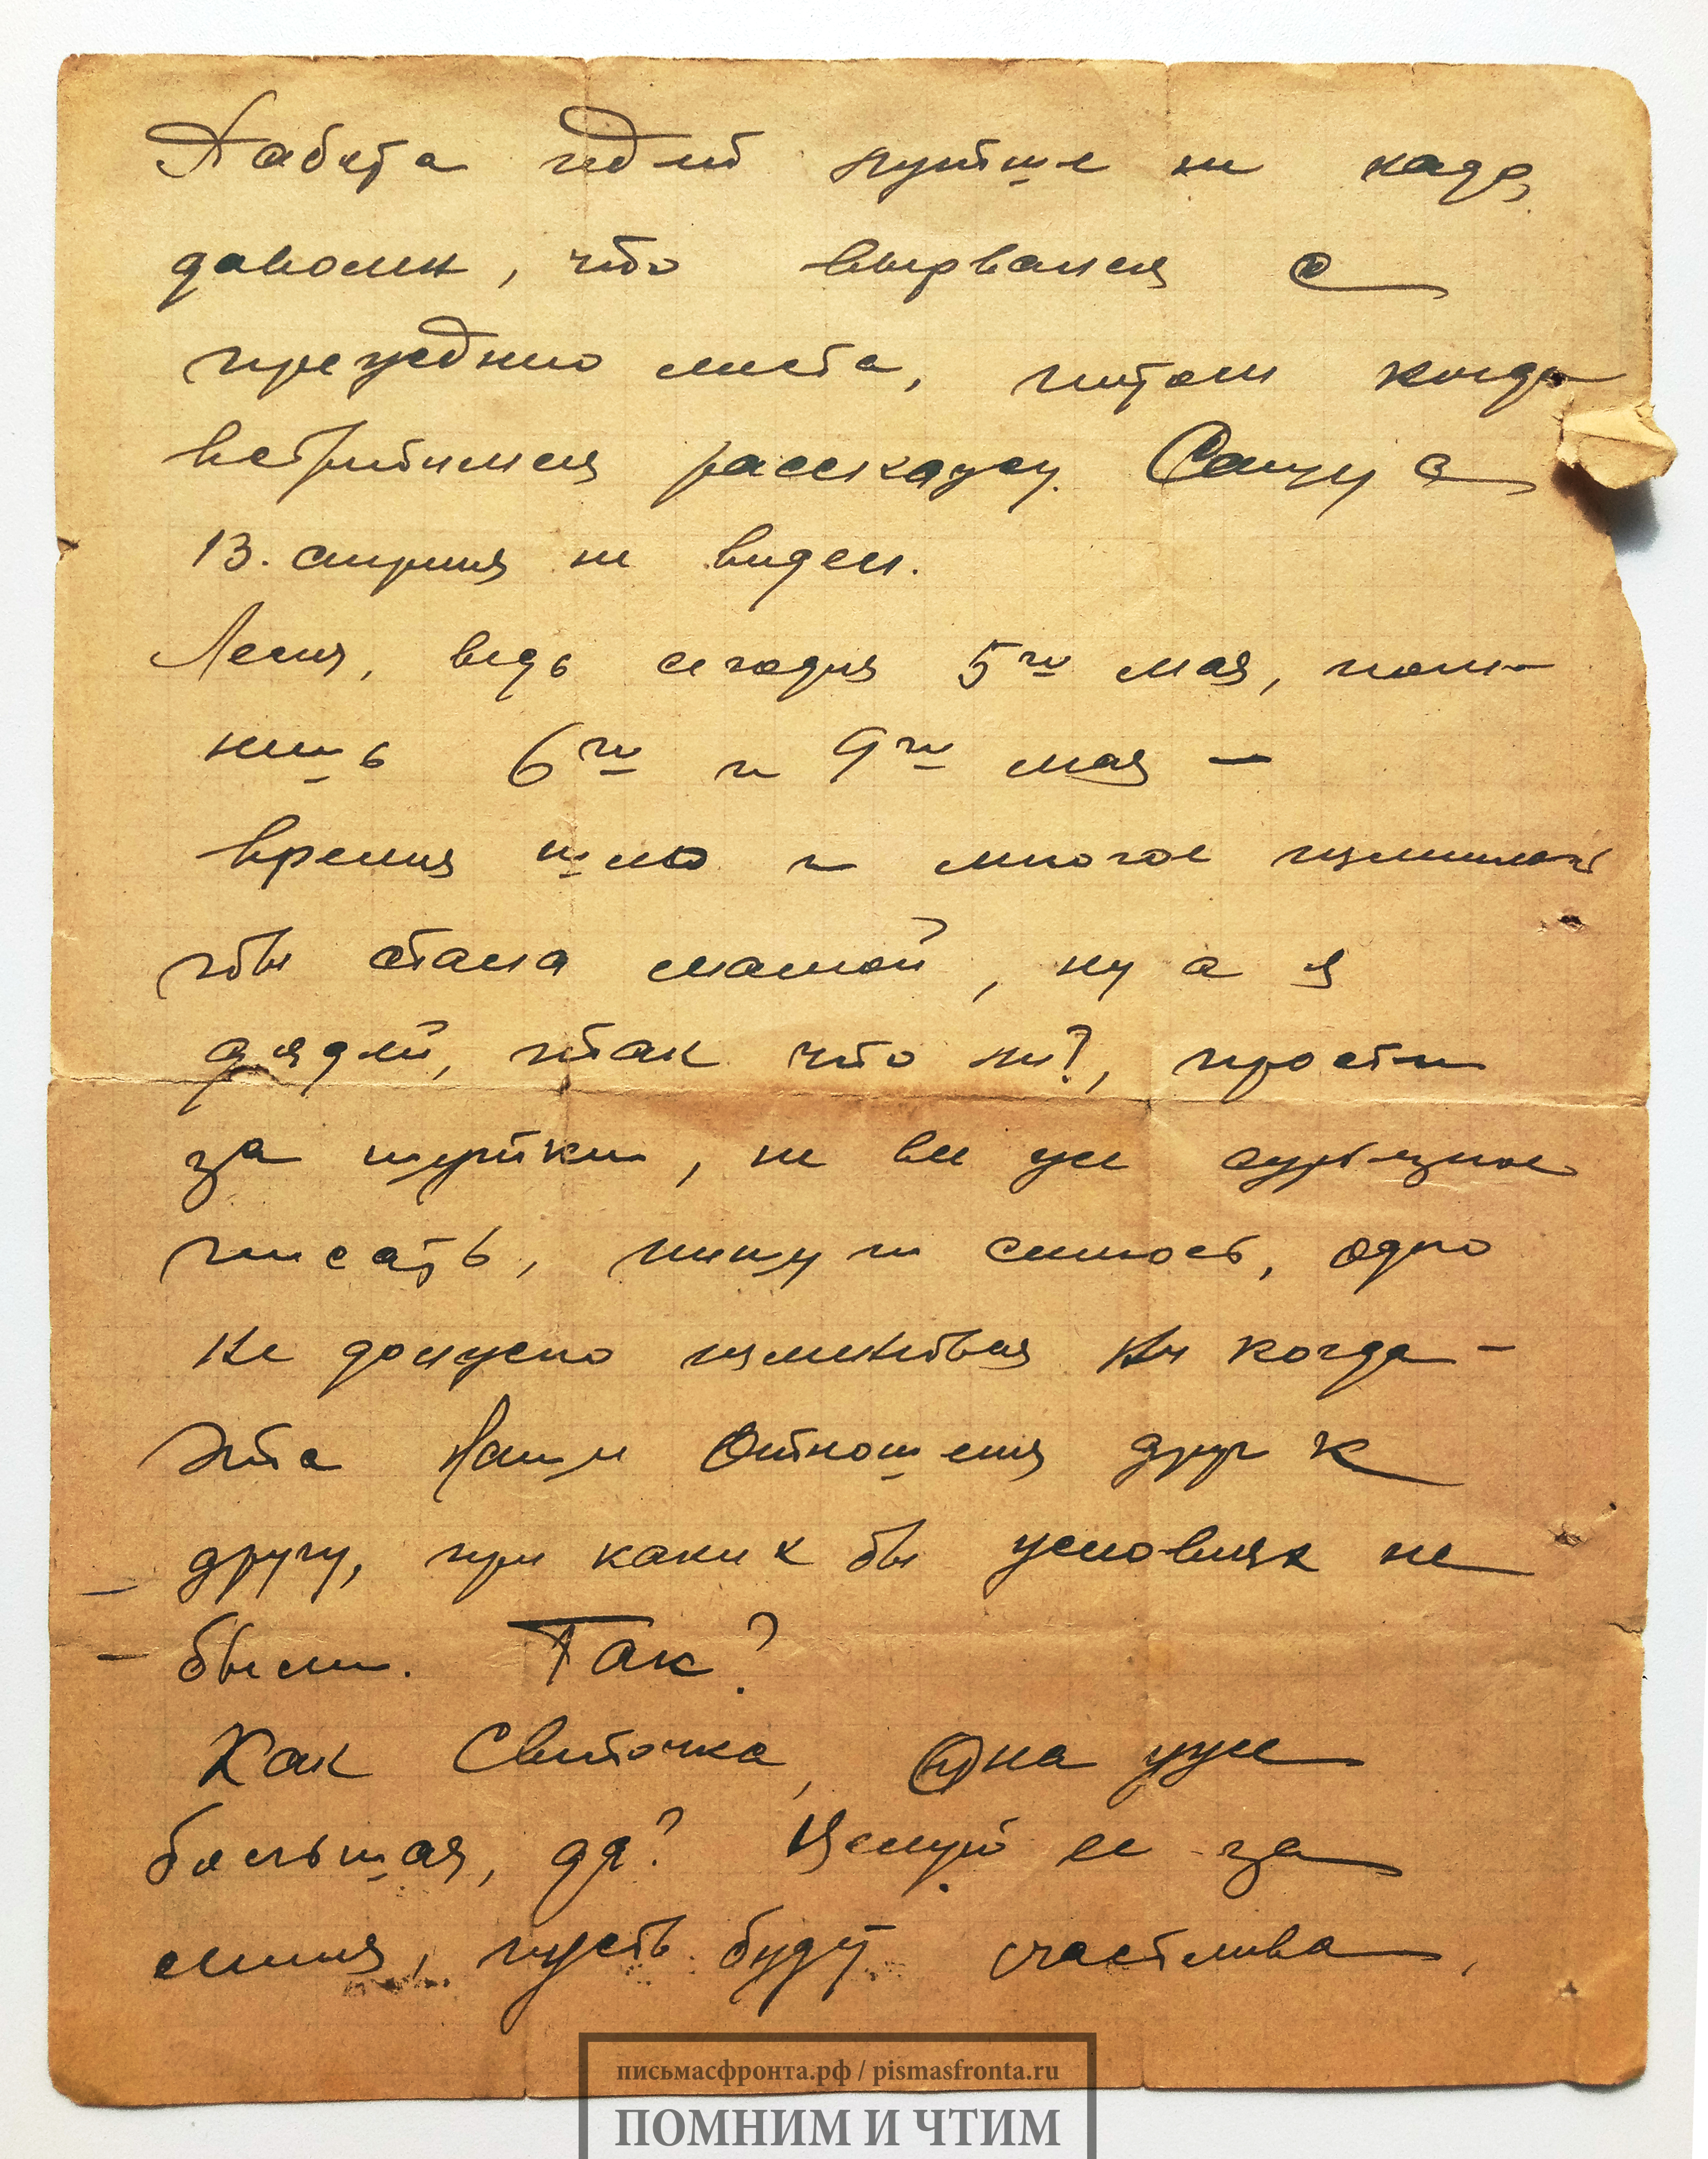 Работа идет лучше не надо,
доволен, что вырвался с
прежднио места, потом когда
встретимся расскажу. Сашу с
13. апреля не видел.
Леля, ведь сегодня 5го мая, пом-
нишь 6го и 9го мая —
время шло и многое изменилось
ты стала мамой, ну а я
дядей, итак что ж?, прости
за шутки, не все же серьезное
писать, пишу и смеюсь, одно
не должно изменится ни когда -
Эта Наши Отношения друг к
другу, при каких бы условиях не
были. Так?
Как Светочка, Она уже
большая, да? Целуй ее за
меня, пусть будут счастлива,
письмасфронта.рф / pismasfronta.ru
ПОМНИМ И ЧТИМ